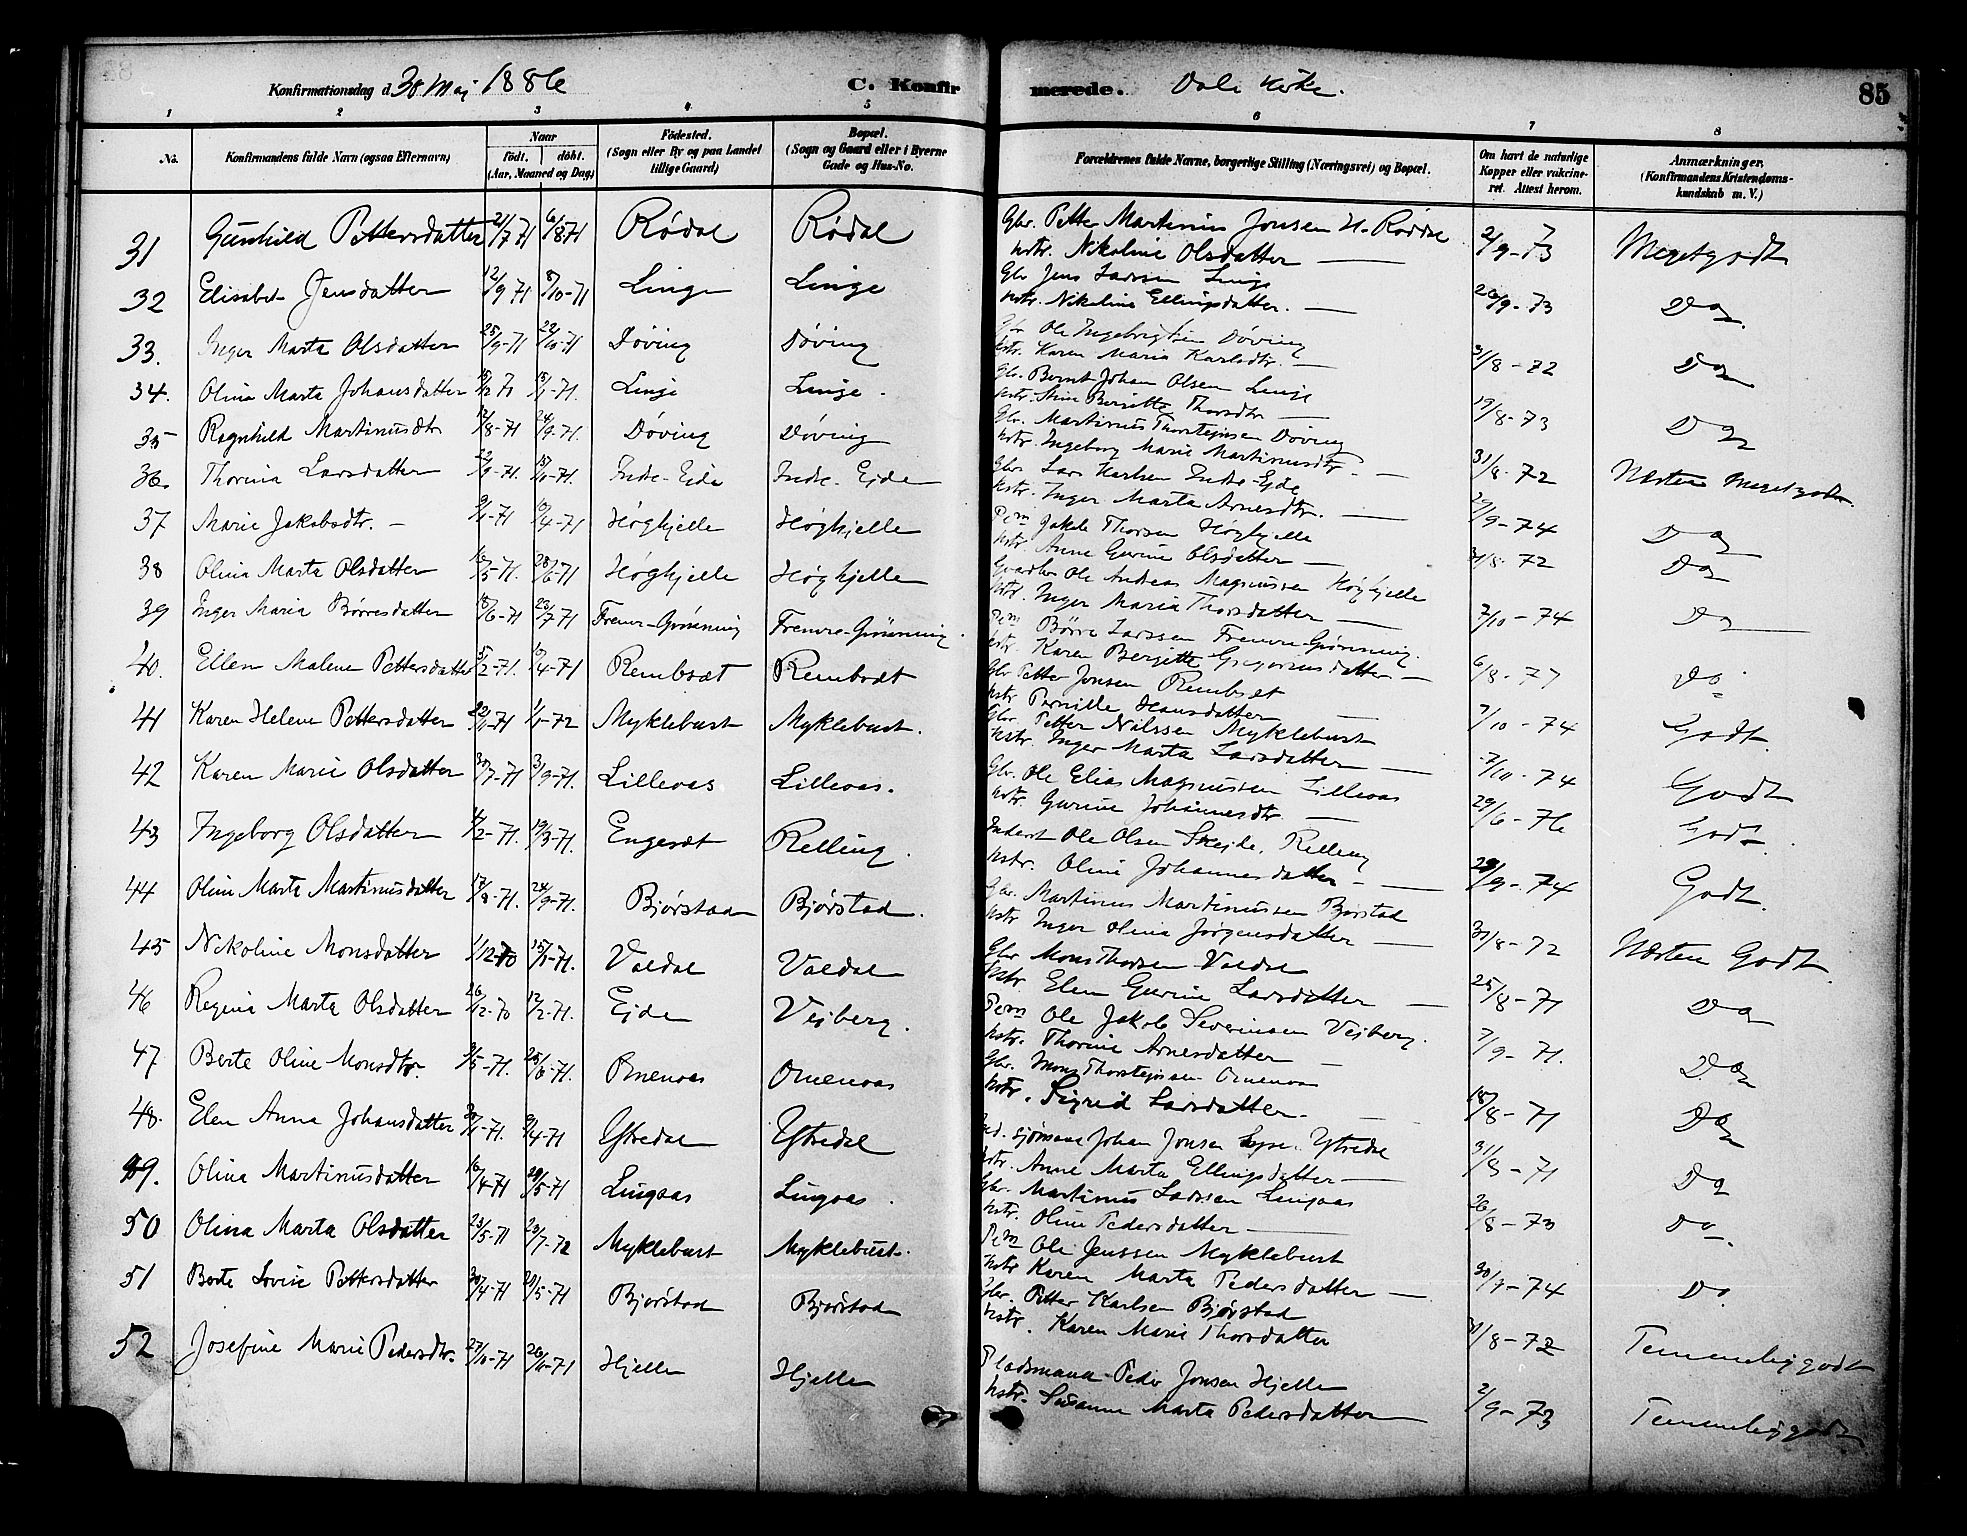 Konfirmationsdag d. 30 Maj 1886 C. Konfirmerede. Dale Kirke. 85
1 2 3 4 5 6 7 8
No. Konfirmandens fulde Navn (ogsaa Efternavn) Naar födt. döbt. (Aar, Maaned og Dag) Födested. (Sogn eller By og paa Landet tillige Gaard) Bopæl. (Sogn og Gaard eller i Byerne Gade og Hus-No. Forældrenes fulde Navne, borgerlige Stilling (Næringsvei) og Bopæl. Om havt de naturlige Kopper eller vakcineret. Attest herom. Anmærkninger. (Konfirmandens Kristendomskundskab m. V.)
31 Gunhild Pettersdatter 21/7 71 6/8 71 Rødal Rødal Gbr. Petter Martinus Jonsen H. Røddal
Hstr. Nikoline Olsdatter — 2/9-73 Megetgodt
32 Elisabet Jensdatter 12/9 71 8/10-71 Linge Linge Gbr Jens Larsen Linge
Hstr. Nikoline Ellingsdatter. — 26/9-73 Do.
33. Inger Marta Olsdatter 25/9-71 22/10-71 Døving Døving Gbr Ole Ingebrigtsen Døving
Hstr. Karen Maria Karlsdtr. — 31/8-72 Do
34. Olina Marta Johansdatter Linje Linge. Gbr. Bernt Johan Olsen Linge
Hstr. Bergitte Thorsdtr — 19/8-73 Do
35 Ragnhild Martinusdtr 12/8-71 24/9-71. Døving Døving Gbr. Martinus Thorstejnsen Døving
Hstr. Ingeborg Marie Martinusdtr. — 31/8-72 Næsten Megetgodt
36. Thorina Larsdatter Indre-Ejde Indre-Ejde Gbr Lars Karlsen Indre-Ejde
Hstr. Inger Marta Arnesdtr. — 29/9-74 Do
37 Marie Jakobsdtr. — Høghjelle Høghjelle Pem Jakob Thorsen Høghjelle
Hstr. Anne Gurine Olsdatter — 31/8-72 Do
38 Olina Marta Olsdatter Høghjelle Høghjelle Gaardbr Ole Andreas Magnussen Høghjelle
Hstr. Inger Maria Thorsdatter — 7/10-74 Do
39 Inger Maria Børresdatter 18/6-71 23/7 71 Fremre-Grønning Fremre-Grønning. Pem Børre Larssen Fremre-Grønning.
Hstr. Karen Bergitte Gregoriusdatter — 6/8-77 Do
40. Ellen Malene Pettersdatter Rembsæt Rembsæt Gbr Petter Jonsen Rembset
Hstr Pernille Hansdatter — 7/10-74 Godt.
41 Karen Helene Pettersdatter 1/1-72 Myklebust Myklebust. Gbr. Petter Nilssen Myklebust
Hstr. Inger Marta Larsdatter — 7/10-74 Godt
42 Karen Marie Olsdatter 30/7-71 3/9-71. Lilleoas Lilleoas. Gbr. Ole Elias Magnussen Lilleoas
Hstr. Gurine Johannesdtr. — 29/6-76 Godt
43 Ingeborg Olsdatter 19/3-71. Engesæt Relling. Inderst Ole Olsen Skejde, Relling
Hstr. Oline Johannesdatter — 29/9-74 Godt.
44 Olina Marta Martinusdatter 17/8-71. 24/9-71. Bjørstad Bjørstad. Gbr. Martinus Martinussen Bjørstad
Hstr Inger Olina Jørgensdatter — 31/8-72 Næsten Godt
45 Nikoline Monsdatter 1/12-70 15/1-71. Valdal Valdal Gbr Mons Thorsen Valdal
Hstr Elen Gurine Larsdatter — 25/8-71 Do
46 Regina Marta Olsdatter 26/12-70 12/2-71. Ejde Vejberg. Pem Ole Jakob Severinsen Vejberg.
Hstr. Thorine Arnesdatter — 7/9-71. Do
47 Berte Oline Monsdtr. Omenoas Omenoas Gbr. Mons Thorstejnsen Omenoas
Hstr. Sigrid Larsdatter. — 18/8-71 Do
48. Elen Anna Johansdatter 9/4-71 Ytredal Ytredal Sjømand Johan Jonsen Ytredal
Hstr. Anne Marta Ellingsdatter — 31/8-71 Do
49. Olina Martinusdatter 16/4-71 29/5-71 Lingoas Lingoas. Gbr. Martinus Larssen Lingoas
Hstr. Oline Pedersdatter — 26/8-73 Do.
50 Olina Marta Olsdatter 23/5-71 23/7-72 Myklebust Myklebust. Pem Ole Jenssen Myklebust
Hstr Karen Marta Pedersdatter — 30/9-74 Do.
51 Berte Lovise Pettersdatter 30/4-71 29/5-71 Bjorstad Bjorstad Gbr. Petter Karlsen Bjørstad
Hstr. Karen Marie Thorsdatter 31/8-72 Temmelig godt
52 Josefine Marie Pedersdtr. Hjelle Hjelle Pladsmand Peder Jonsen Hjelle
Hstr. Susanne Marta Pedersdatter — 2/9-73 Temmelig godt